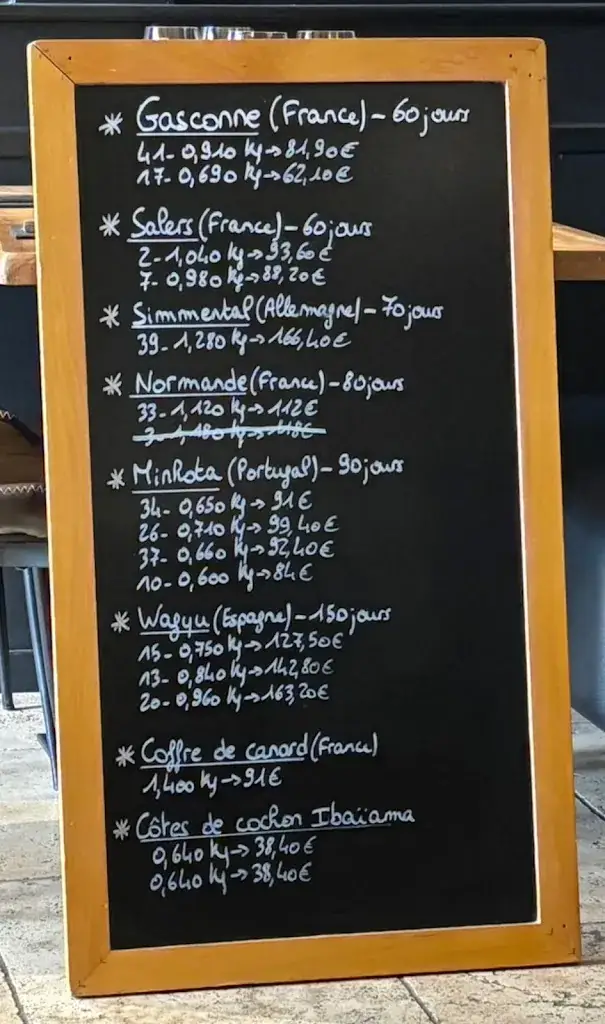 * Gasconne (France) - 60 jours
41 - 0,910 kg → 81,90€
17 - 0,690 kg → 62,10€
* Salers (France) - 60 jours
2 - 1,040 kg → 93,60€
7 - 0,980 kg → 88,20€
* Simmental (Allemagne) - 70 jours
39 - 1,280 kg → 166,40€
* Normande (France) - 80 jours
33 - 1,120 kg → 112€
3 - 1,180 kg → 118€
* Minhota (Portugal) - 90 jours
34 - 0,650 kg → 91€
26 - 0,710 kg → 99,40€
37 - 0,660 kg → 92,40€
10 - 0,600 kg → 84€
* Wagyu (Espagne) - 150 jours
15 - 0,750 kg → 127,50€
13 - 0,840 kg → 142,80€
20 - 0,960 kg → 163,20€
* Coffre de canard (France)
1,400 kg → 91€
* Côtes de cochon Ibaïama
0,640 kg → 38,40€
0,640 kg → 38,40€